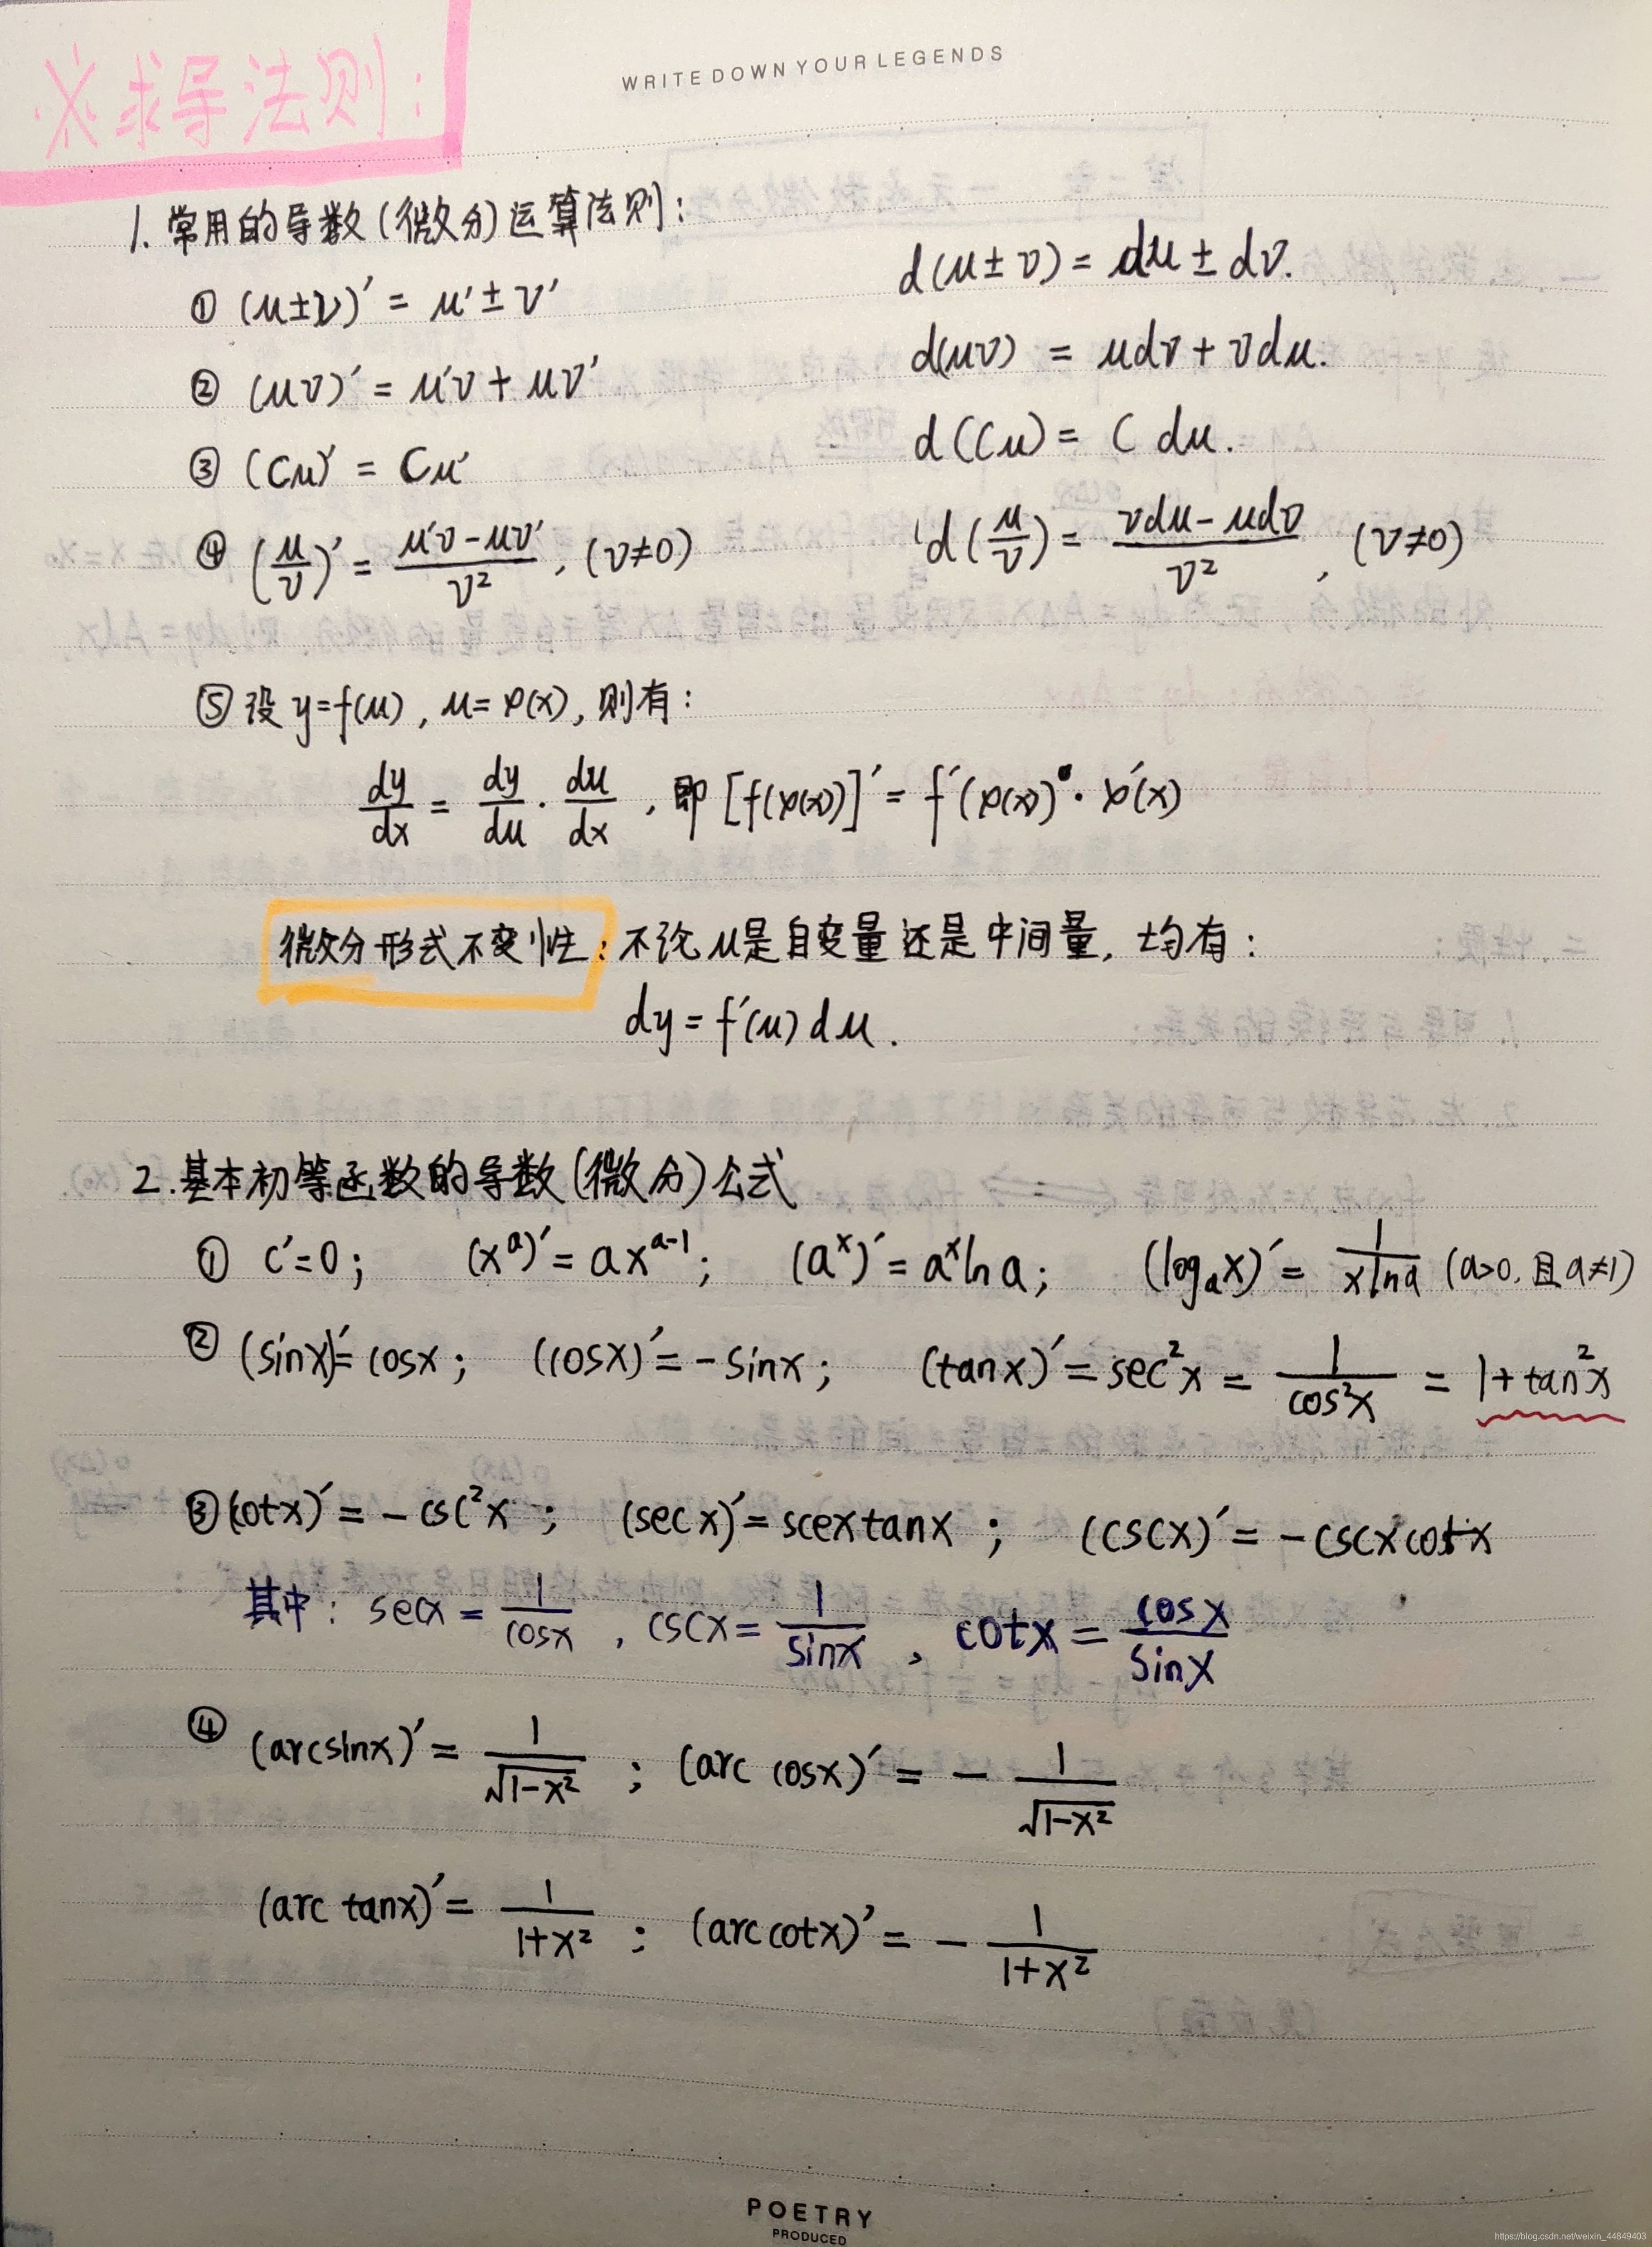 WRITE DOWN YOUR LEGENDS
※求导法则:
1. 常用的导数(微分)运算法则:
① (μ±ν)′ = μ′±ν′    d(μ±ν) = dμ ± dν.
② (μν)′ = μ′ν + μν′    d(μν) = μdν + νdμ.
③ (Cμ)′ = Cμ′    d(Cμ) = C dμ.
④ (μ/ν)′ = (μ′ν-μν′)/ν², (ν≠0)    d(μ/ν) = (νdμ-μdν)/ν², (ν≠0)
⑤ 设 y=f(μ), μ=φ(x), 则有:
dy/dx = dy/dμ · dμ/dx, 即 [f(φ(x))]′ = f′(φ(x)) · φ′(x)
微分形式不变性: 不论μ是自变量还是中间量, 均有:
dy = f′(μ)dμ.
2. 基本初等函数的导数(微分)公式
① C′=0; (x^a)′ = ax^(a-1); (a^x)′ = a^x ln a; (log_a x)′ = 1/(x ln a) (a>0, 且a≠1)
② (sinx)′= cosx; (cosx)′ = -sinx; (tanx)′ = sec²x = 1/cos²x = 1+tan²x
③ (cotx)′ = -csc²x; (secx)′ = scextanx; (cscx)′ = -cscxcotx
其中: secx = 1/cosx, cscx = 1/sinx, cotx = cosx/sinx
④ (arcsinx)′ = 1/√(1-x²); (arc cosx)′ = - 1/√(1-x²)
(arc tanx)′ = 1/(1+x²); (arc cotx)′ = - 1/(1+x²)
POETRY
PRODUCED
https://blog.csdn.net/weixin_44849403